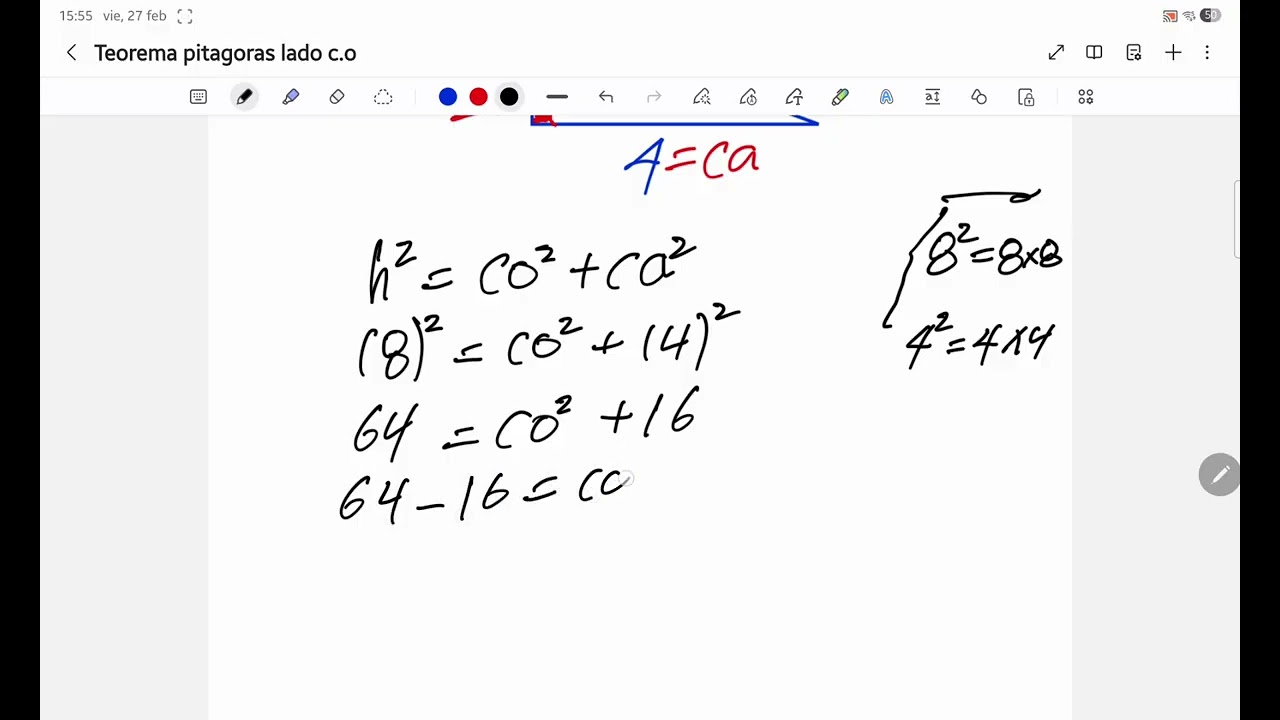 15:55 vie, 27 feb
50
Teorema pitagoras lado c.o
4=ca
h²=co²+ca²
(8)²=co²+(4)²
64=co²+16
64-16=co
8²=8×8
4²=4×4